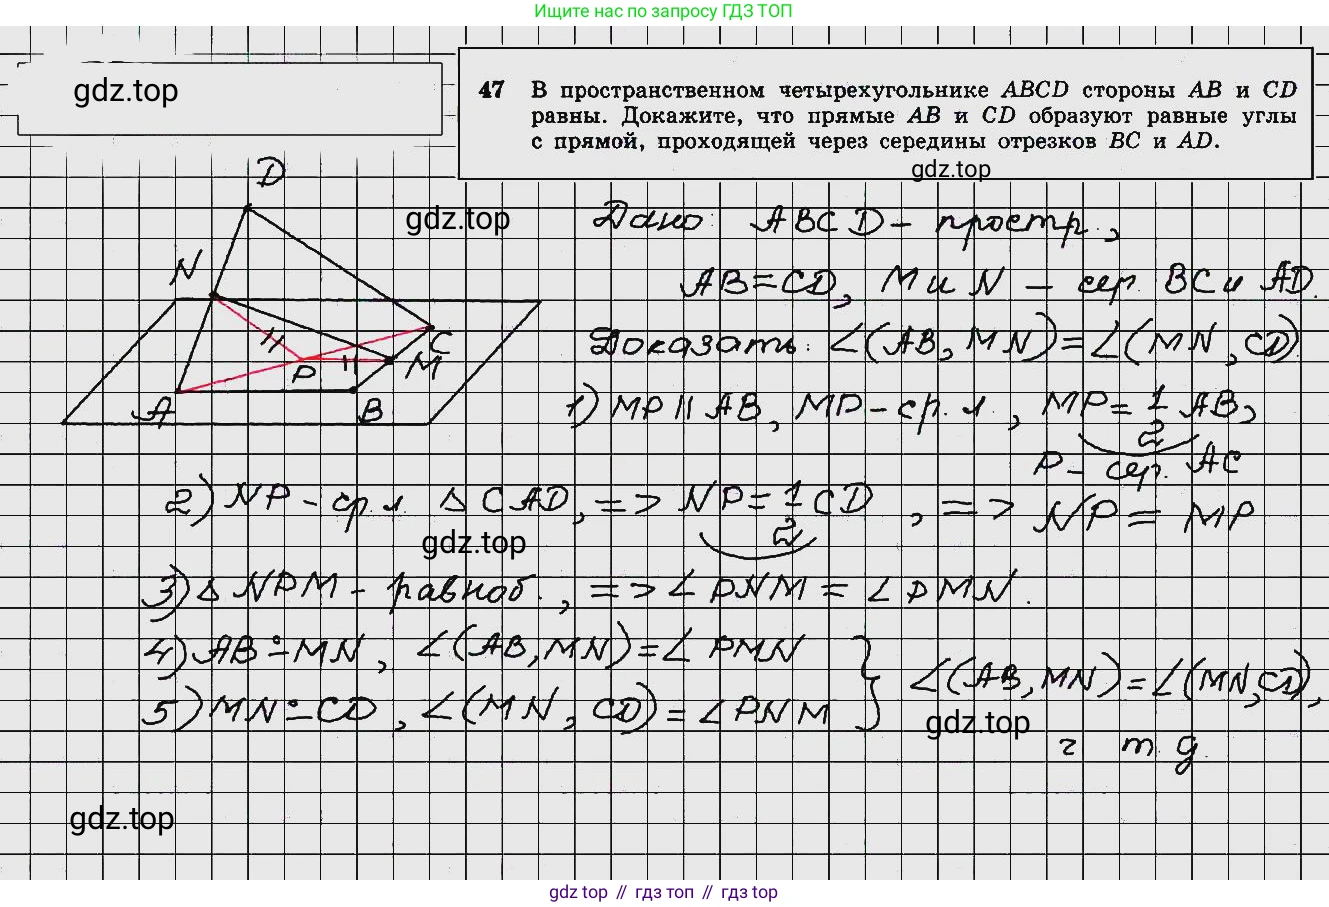 Ищите нас по запросу ГДЗ ТОП
gdz.top
47 В пространственном четырехугольнике ABCD стороны AB и CD
равны. Докажите, что прямые AB и CD образуют равные углы
с прямой, проходящей через середины отрезков BC и AD.
gdz.top
D
gdz.top
N
C
M
P
A
B
Дано: ABCD – простр.,
AB=CD, M и N – сер. BC и AD.
Доказать: ∠(AB, MN)=∠(MN, CD)
1) MP || AB, MP – ср. л., MP = 1/2 AB,
P – сер. AC
2) NP – ср. л. △ CAD, => NP = 1/2 CD, => NP = MP
gdz.top
3) △ NPM – равноб., => ∠ PNM = ∠ PMN.
4) AB ∸ MN, ∠(AB, MN) = ∠ PMN
5) MN ∸ CD, ∠(MN, CD) = ∠ PNM
} ∠(AB, MN) = ∠(MN, CD),
gdz.top
ч т д.
gdz.top
gdz top // гдз топ // gdz top